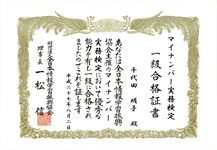 マイナンバー実務検定
一級合格証書
千代田 明子 殿
あなたは全日本情報学習振興
協会主催のマイナンバー
実務検定において優秀な
能力を有し一級に合格され
ましたのでこれを証します
平成二十七年八月二日
財団法人全日本情報学習振興協会
理事長 一松 信